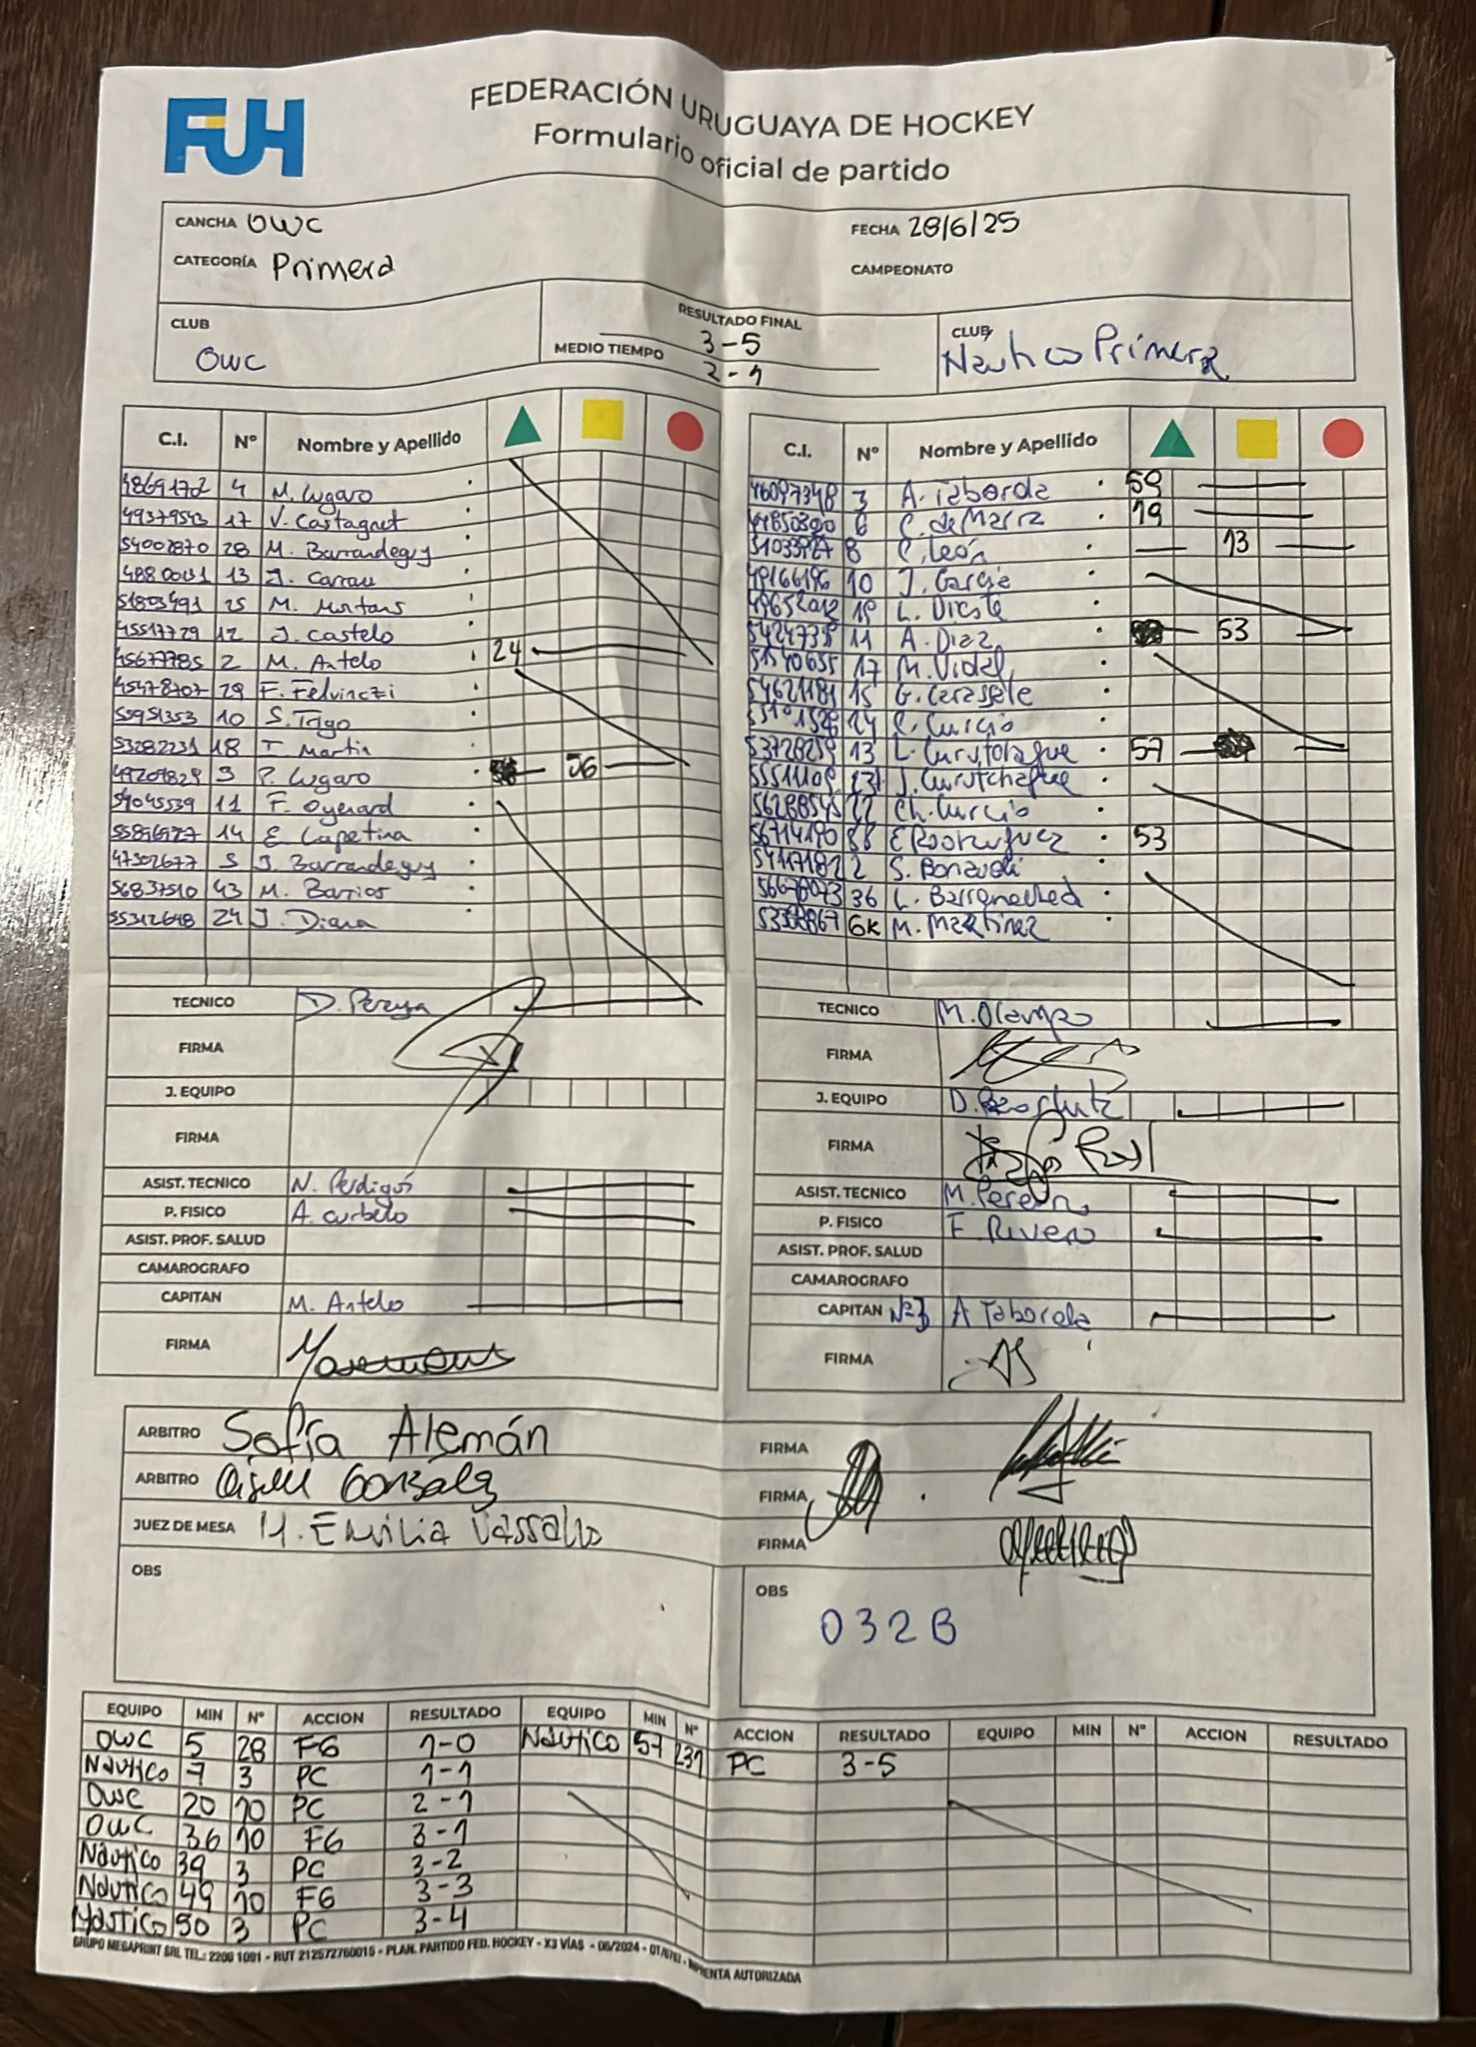 FUH
FEDERACIÓN URUGUAYA DE HOCKEY
Formulario oficial de partido
CANCHA OWC
FECHA 28/6/25
CATEGORÍA Primera
CAMPEONATO
CLUB OWC
RESULTADO FINAL 3-5
MEDIO TIEMPO 2-1
CLUB Nautico Primera
C.I. Nº Nombre y Apellido
48691702 4 M. Lugaro
49379543 17 V. Castagnet
54002870 28 M. Barrandeguy
4880 13 J. Carrau
51803491 25 M.
45517729 12 J. Castelo
45677785 2 M. Antelo 24
45478707 29 F. Felvinczi
55951353 10 S. Trigo
53282231 18 T. Martin
49201829 9 P. Lugaro 56
54045539 11 F. Oyenard
55896927 14 E. Capetina
47302677 5 J. Barrandeguy
56837510 43 M. Barrios
55312648 24 J. Diana
TECNICO D. Pereyra
FIRMA
J. EQUIPO
FIRMA
ASIST. TECNICO N. Perdigos
P. FISICO A. Curbelo
ASIST. PROF. SALUD
CAMAROGRAFO
CAPITAN M. Antelo
FIRMA
C.I. Nº Nombre y Apellido
46097348 3 A. Taborda 59
6 C. de Marra 19
8 C. León 13
49166196 10 J. Garcia
19 L. Dieste
11 A. Diaz 53
51540655 17 M. Vidal
54621181 15 G. Carassale
24 C. Curcio
53728259 13 L. Curutchague 57
231 J. Curutchague
22 Ch. Curcio
56714190 88 E Rodriguez 53
2 S. Bonavoli
36 L. Barreneched
6K M. Martinez
TECNICO M. Ocampo
FIRMA
J. EQUIPO D.
FIRMA
ASIST. TECNICO M. Pereyra
P. FISICO F. Rivero
ASIST. PROF. SALUD
CAMAROGRAFO
CAPITAN Nº3 A Taborda
FIRMA
ARBITRO Sofía Alemán FIRMA
ARBITRO Gisell Gonzalez FIRMA
JUEZ DE MESA M. Emilia Vassallo FIRMA
OBS
OBS
032B
EQUIPO MIN Nº ACCION RESULTADO EQUIPO MIN Nº ACCION RESULTADO EQUIPO MIN Nº ACCION RESULTADO
OWC 5 28 FG 1-0 Náutico 57 231 PC 3-5
Náutico 7 3 PC 1-1
OWC 20 10 PC 2-1
OWC 36 10 FG 3-1
Náutico 39 3 PC 3-2
Náutico 49 10 FG 3-3
Náutico 50 3 PC 3-4
GRUPO MEGAPRINT SRL TEL.: 2200 1091 - RUT 212572760015 - PLAN. PARTIDO FED. HOCKEY - X3 VÍAS - 06/2024 - IMPRENTA AUTORIZADA